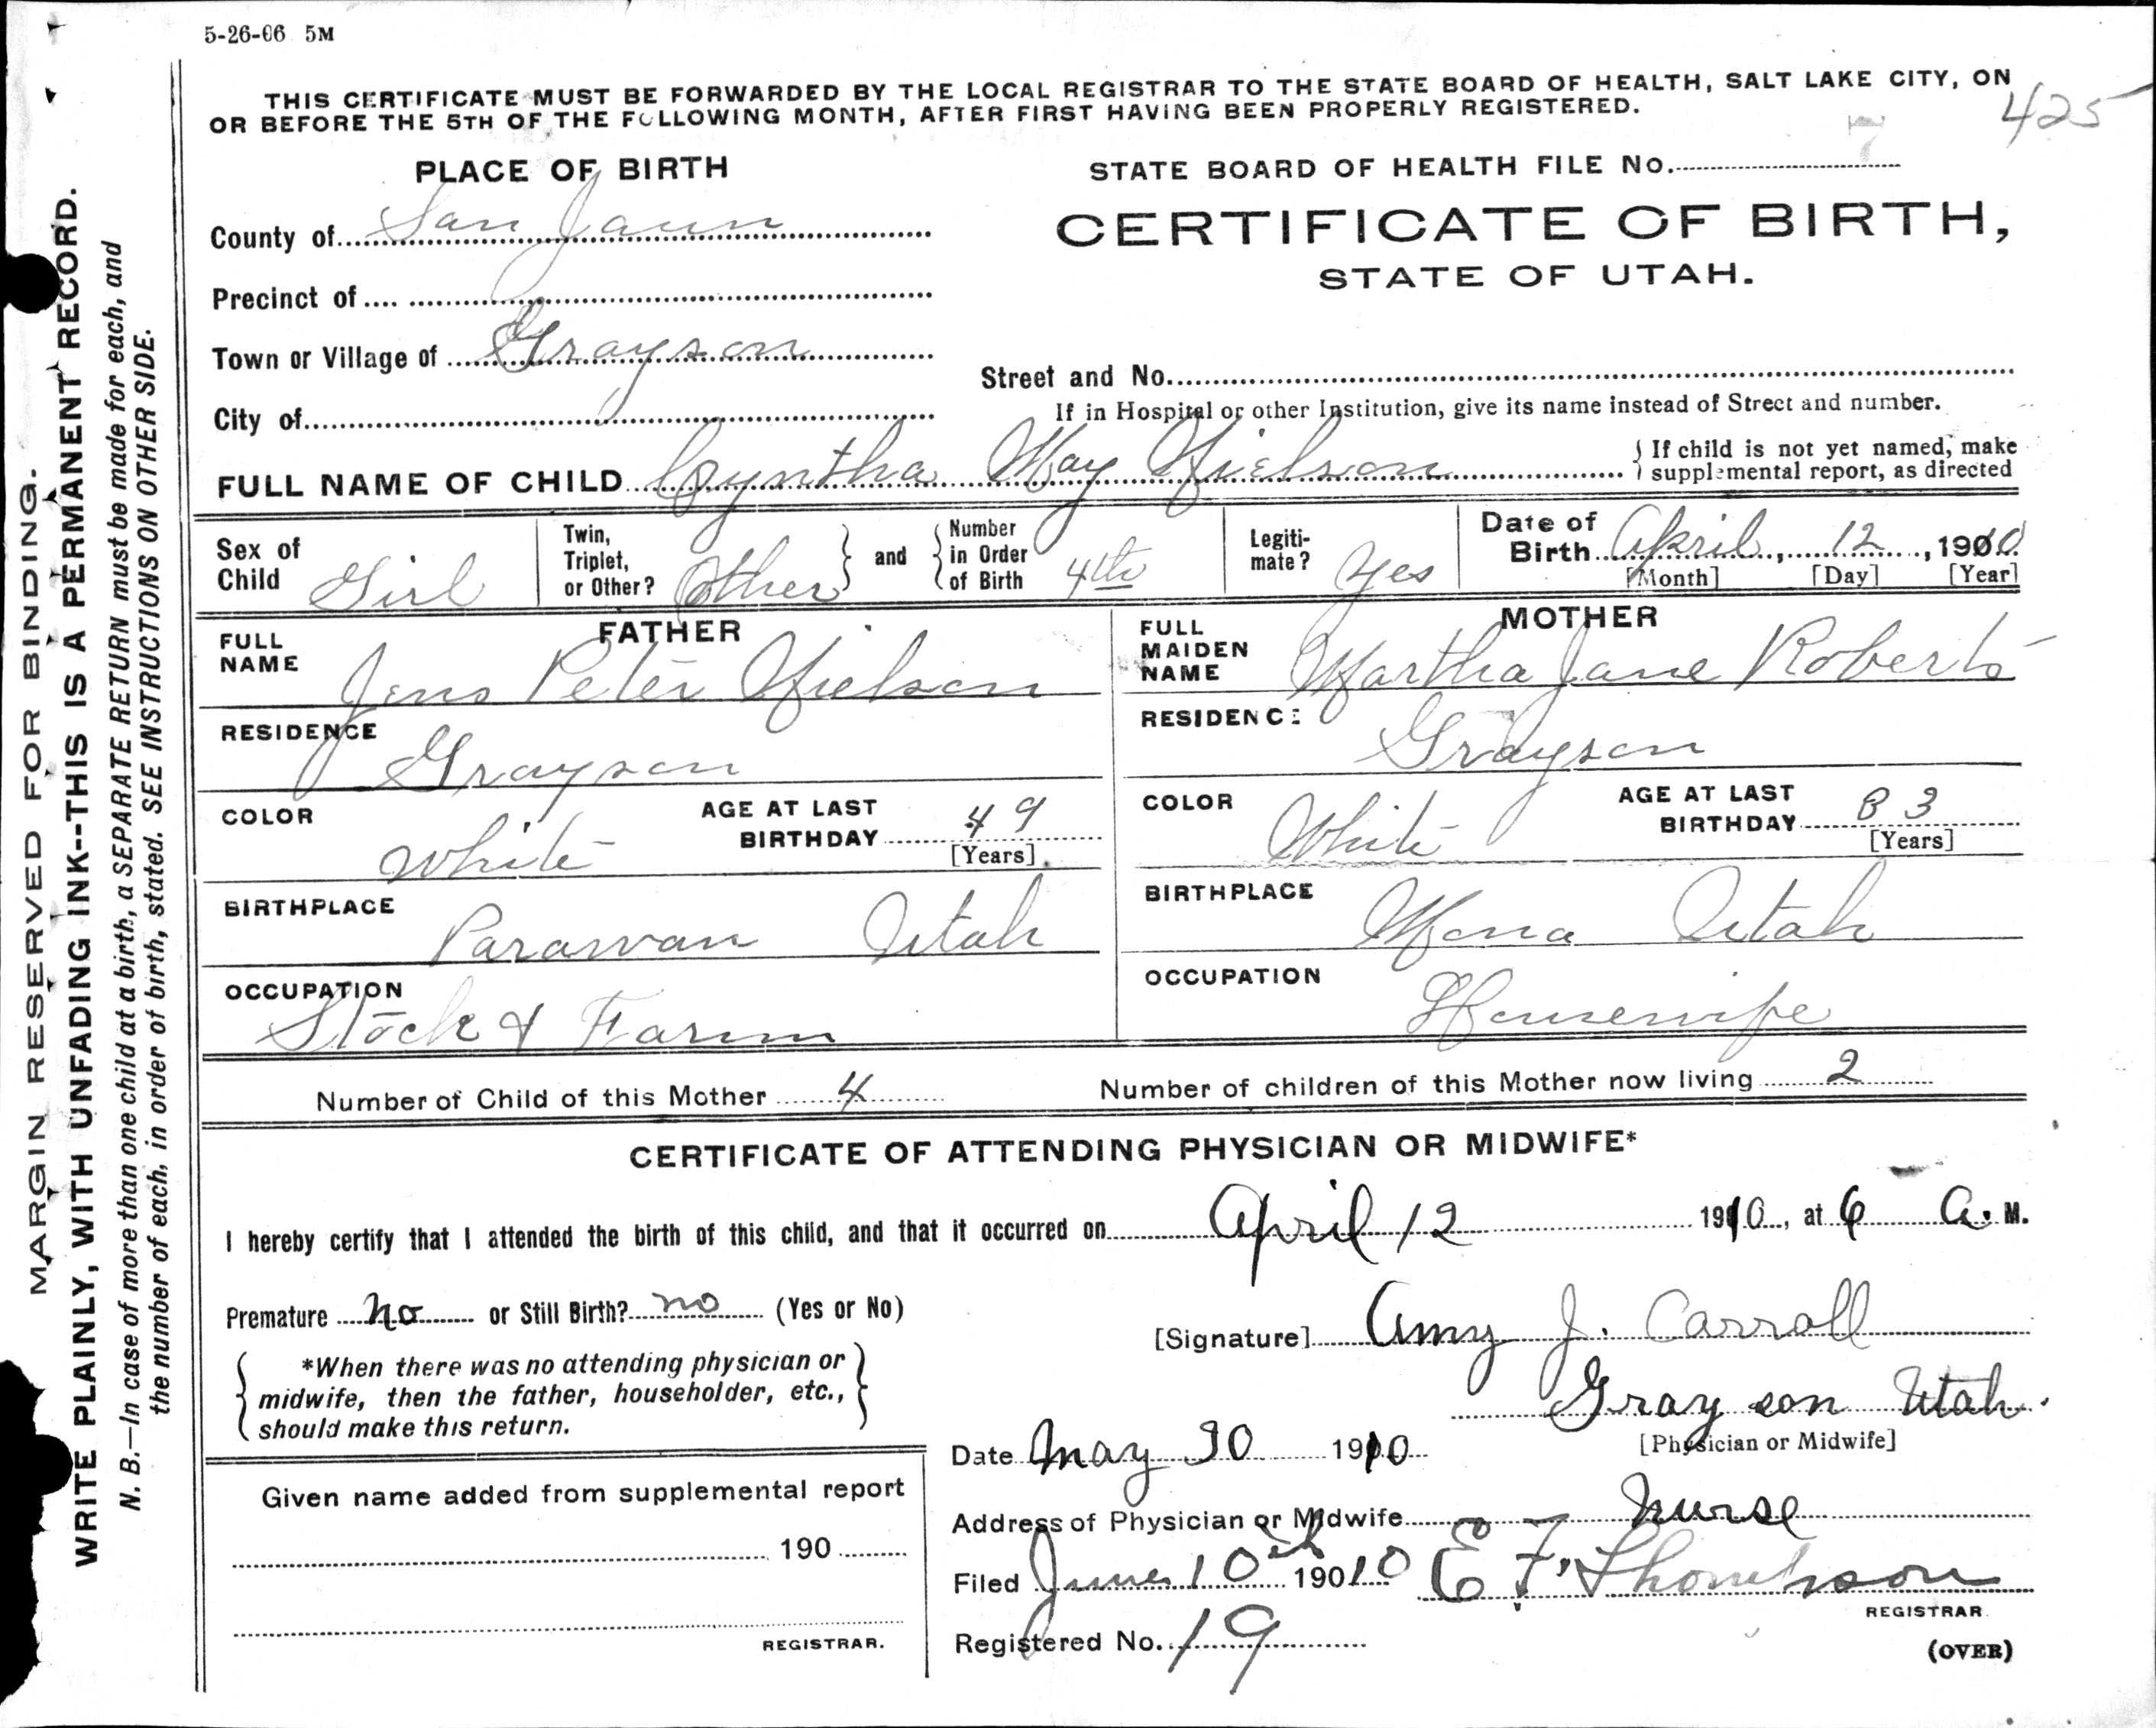 5-26-06 5M
THIS CERTIFICATE MUST BE FORWARDED BY THE LOCAL REGISTRAR TO THE STATE BOARD OF HEALTH, SALT LAKE CITY, ON
OR BEFORE THE 5TH OF THE FOLLOWING MONTH, AFTER FIRST HAVING BEEN PROPERLY REGISTERED.
425
PLACE OF BIRTH
STATE BOARD OF HEALTH FILE No. 7
County of San Jaun
CERTIFICATE OF BIRTH,
STATE OF UTAH.
Precinct of
Town or Village of Grayson
Street and No.
City of
If in Hospital or other Institution, give its name instead of Street and number.
FULL NAME OF CHILD Cyntha May Nielson
If child is not yet named, make
supplemental report, as directed
Sex of Child Girl
Twin, Triplet, or Other? Other
and Number in Order of Birth 4th
Legiti-mate? Yes
Date of Birth April, 12, 1910
[Month] [Day] [Year]
FATHER
FULL NAME Jens Peter Nielson
RESIDENCE Grayson
COLOR White
AGE AT LAST BIRTHDAY 49
[Years]
BIRTHPLACE Parawan Utah
OCCUPATION Stock & Farm
MOTHER
FULL MAIDEN NAME Martha Jane Roberts
RESIDENCE Grayson
COLOR White
AGE AT LAST BIRTHDAY 33
[Years]
BIRTHPLACE Mona Utah
OCCUPATION Housewife
Number of Child of this Mother 4
Number of children of this Mother now living 2
CERTIFICATE OF ATTENDING PHYSICIAN OR MIDWIFE*
I hereby certify that I attended the birth of this child, and that it occurred on April 12 1910, at 6 A. M.
Premature no or Still Birth? no (Yes or No)
[Signature] Amy J. Carroll
Grayson Utah.
[Physician or Midwife]
*When there was no attending physician or
midwife, then the father, householder, etc.,
should make this return.
Date May 30 1910
Address of Physician or Midwife nurse
Given name added from supplemental report
190
REGISTRAR.
Filed June 10th 19010 E F. Thompson
REGISTRAR.
Registered No. 19
(OVER)
MARGIN RESERVED FOR BINDING.
WRITE PLAINLY, WITH UNFADING INK--THIS IS A PERMANENT RECORD.
N. B.—In case of more than one child at a birth, a SEPARATE RETURN must be made for each, and
the number of each, in order of birth, stated. SEE INSTRUCTIONS ON OTHER SIDE.